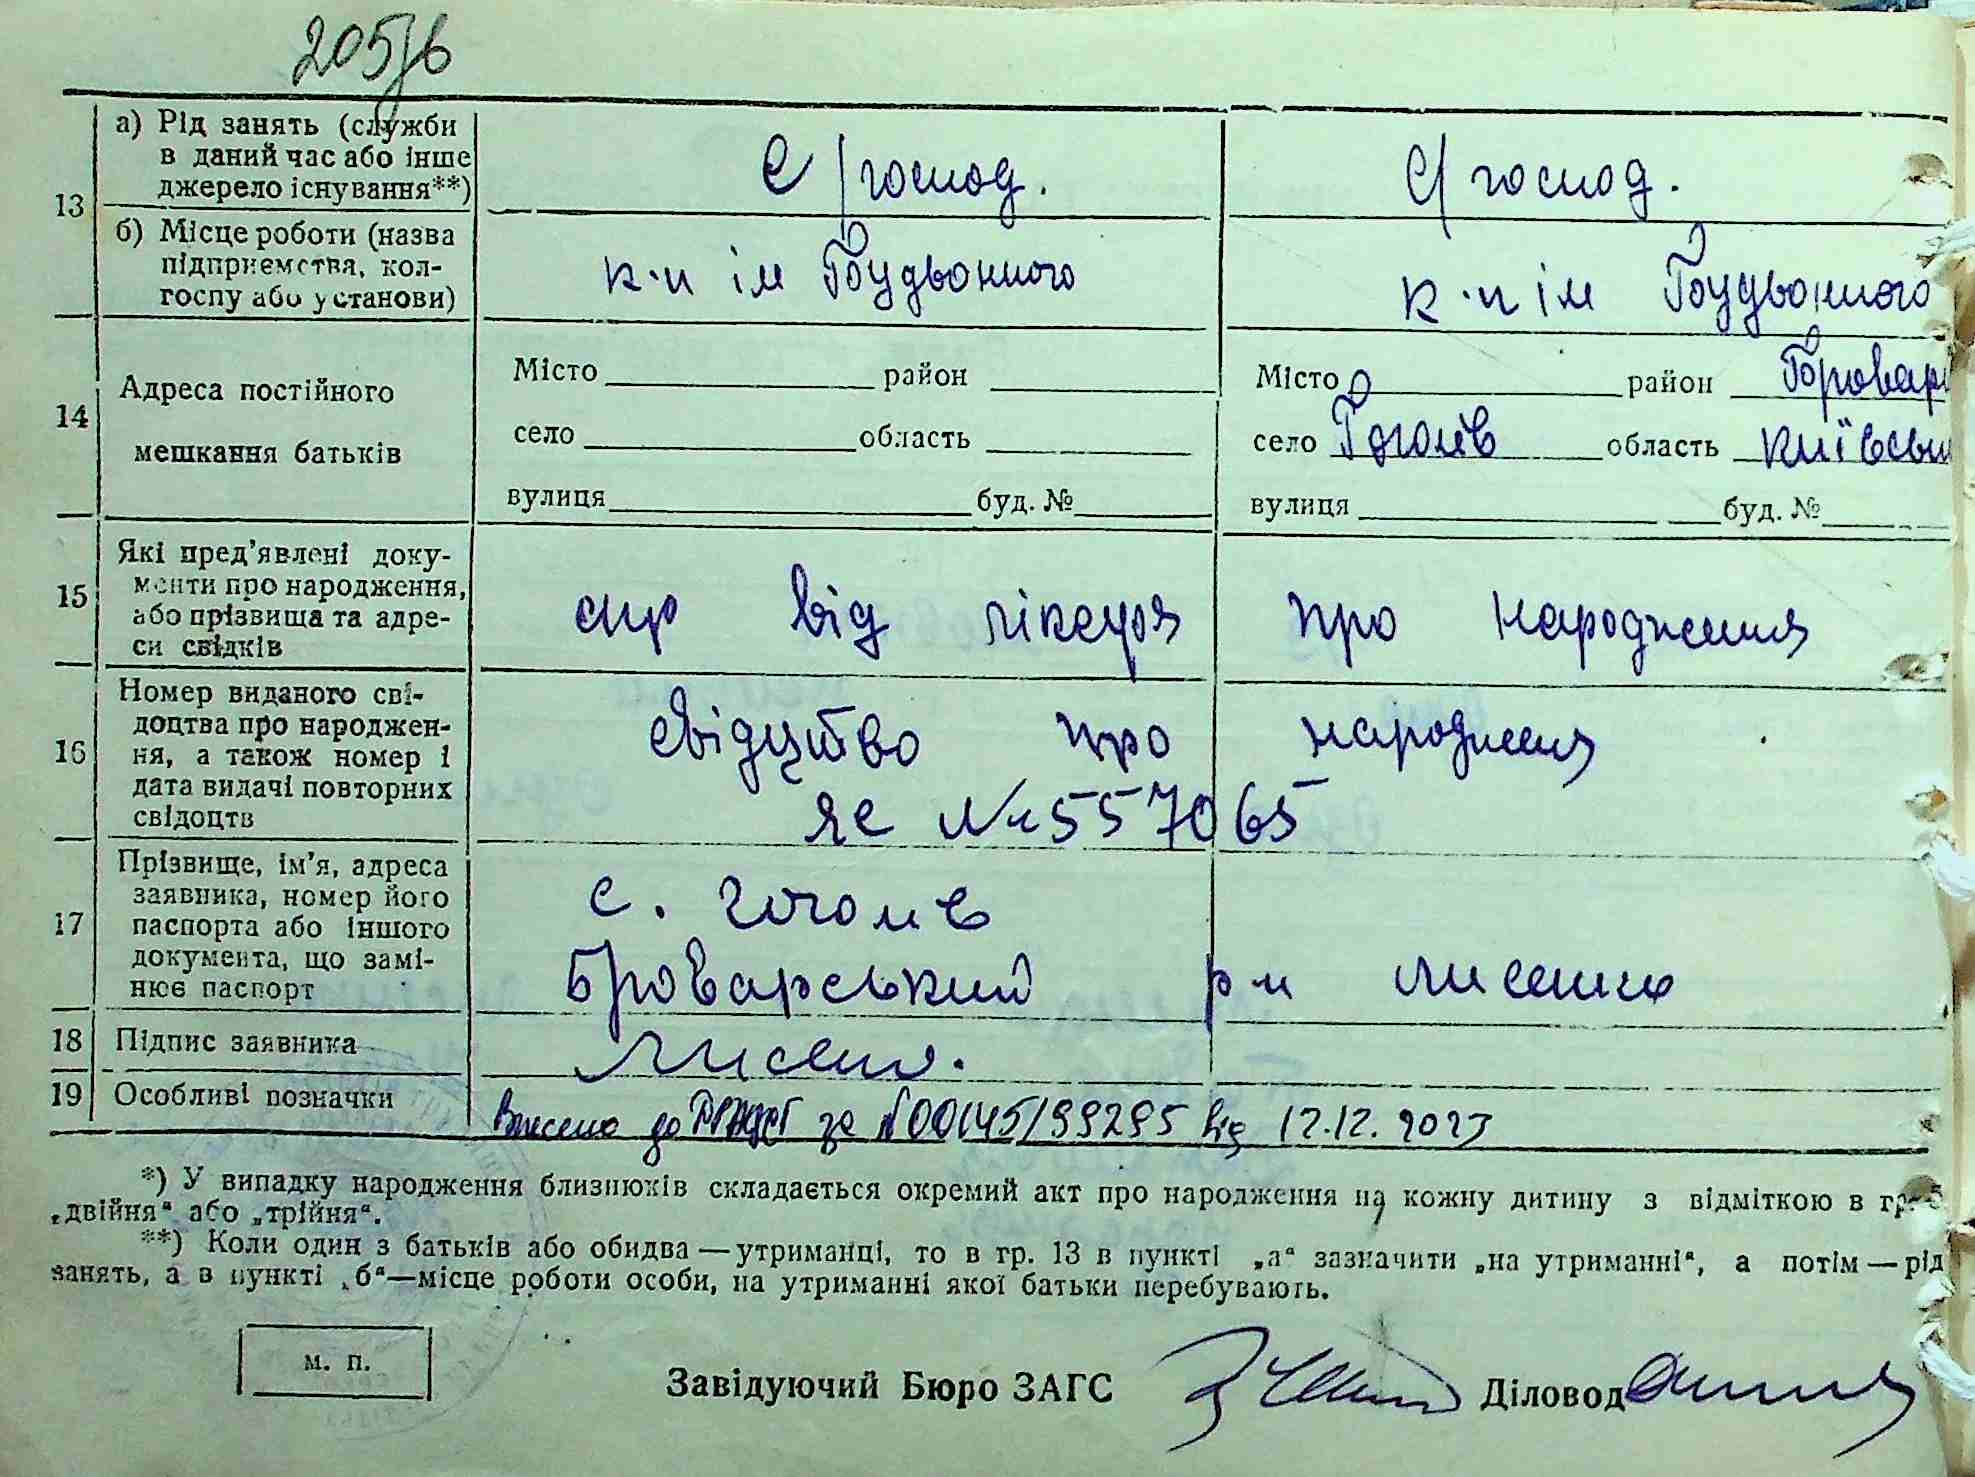 205
13
а) Рід занять (служби
в даний час або інше
джерело існування**)
С/господ.
С/господ.
б) Місце роботи (назва
підприємства, кол-
госпу або установи)
к-п ім Будьонного
к-п ім Будьонного
14
Адреса постійного
мешкання батьків
Місто район
село область
вулиця буд. №
Місто район Бровар
село Гоголів область Київськ
вулиця буд. №
15
Які пред'явлені доку-
менти про народження,
або прізвища та адре-
си свідків
від лікаря про народження
16
Номер виданого сві-
доцтва про народжен-
ня, а також номер і
дата видачі повторних
свідоцтв
свідуцтво про народження
ЯЕ № 557065
17
Прізвище, ім'я, адреса
заявника, номер його
паспорта або іншого
документа, що замі-
нює паспорт
с. Гоголів
Броварський р-н Лисенко
18
Підпис заявника
Лисенко.
19
Особливі позначки
Внесено до ДРАЦСГ за №00145199295 від 12.12.2023
*) У випадку народження близнюків складається окремий акт про народження на кожну дитину з відміткою в гр. 5
„двійня“ або „трійня“.
**) Коли один з батьків або обидва — утриманці, то в гр. 13 в пункті „а“ зазначити „на утриманні“, а потім — рід
занять, а в пункті „б“ — місце роботи особи, на утриманні якої батьки перебувають.
м. п.
Завідуючий Бюро ЗАГС
Діловод